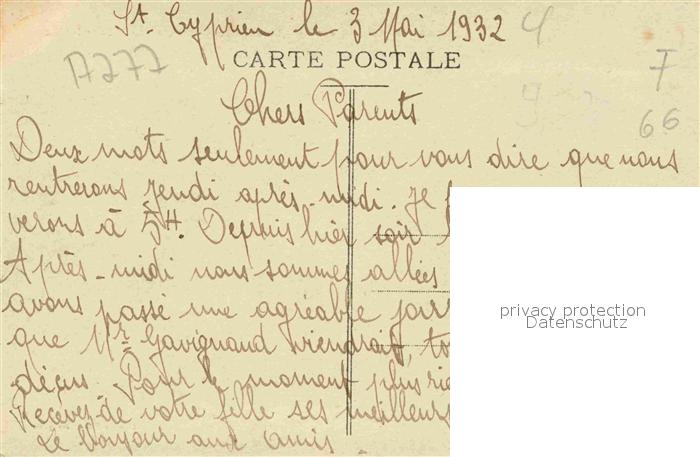 St. Cyprien le 3 Mai 1932
A777
CARTE POSTALE
F
66
Chers Parents
Deux mots seulement pour vous dire que nous
rentrerons jeudi après-midi. Je
verons à 5H. Depuis hier soir
Après-midi nous sommes allées
avons passé une agréable
que Mr Gavignaud viendrait,
déçus. Pour le moment plus
Recevez de votre fille ses meilleurs
Le Bonjour aux amis.
privacy protection
Datenschutz